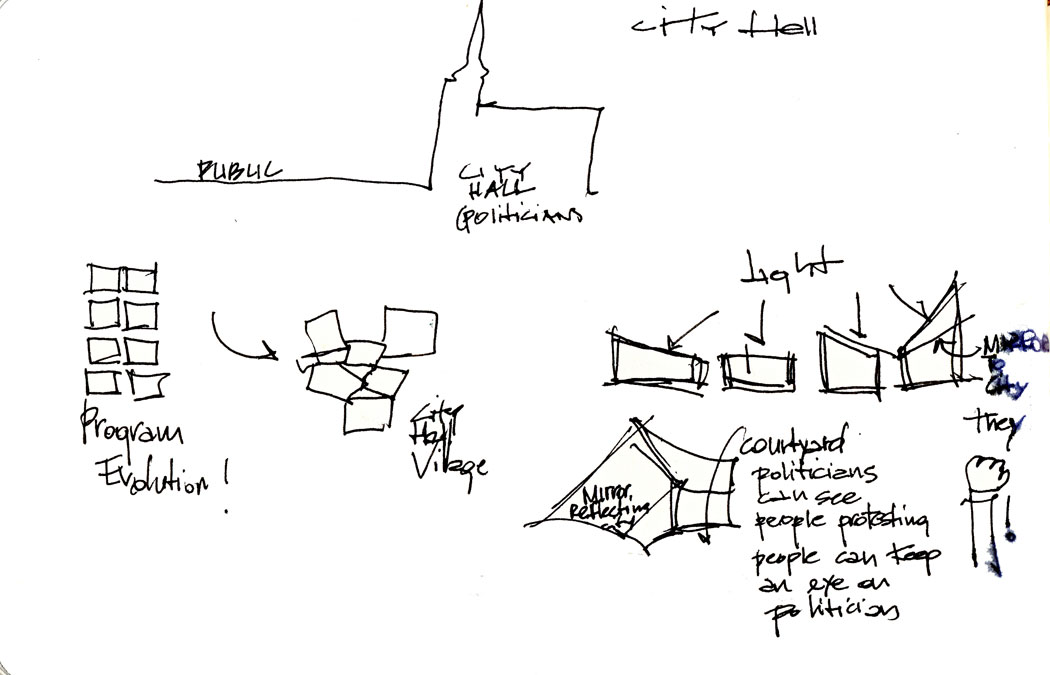 City Hall
PUBLIC
CITY
HALL
(politicians
Light
MIRROR
TO
City
they
Program
Evolution!
City
Hall
Village
Mirror
Reflecting
courtyard
politicians
can see
people protesting
people can keep
an eye on
politicians
!